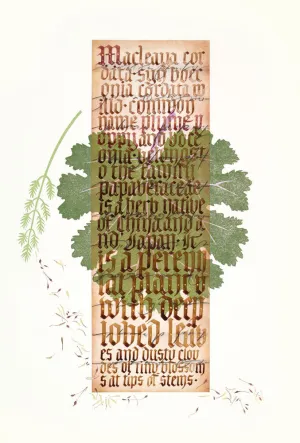 Macleaya cor
data-syn boec
onia cordata w
ild-common
name plume p
oppy and boc
conia belongst
o the family
papaveraceae
is a herb native
of china and a
nd Japan. It
is a peren
ial plant
with deep
lobed leav
es and dusty clou
des of tiny blossom
s at tips of stems.